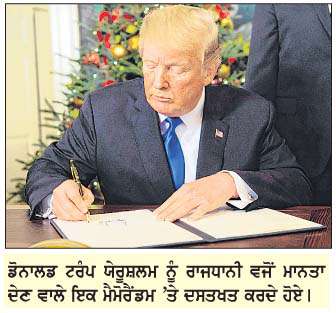 ਡੋਨਾਲਡ ਟਰੰਪ ਯੇਰੂਸ਼ਲਮ ਨੂੰ ਰਾਜਧਾਨੀ ਵਜੋਂ ਮਾਨਤਾ
ਦੇਣ ਵਾਲੇ ਇਕ ਮੈਮੋਰੈਂਡਮ 'ਤੇ ਦਸਤਖਤ ਕਰਦੇ ਹੋਏ।